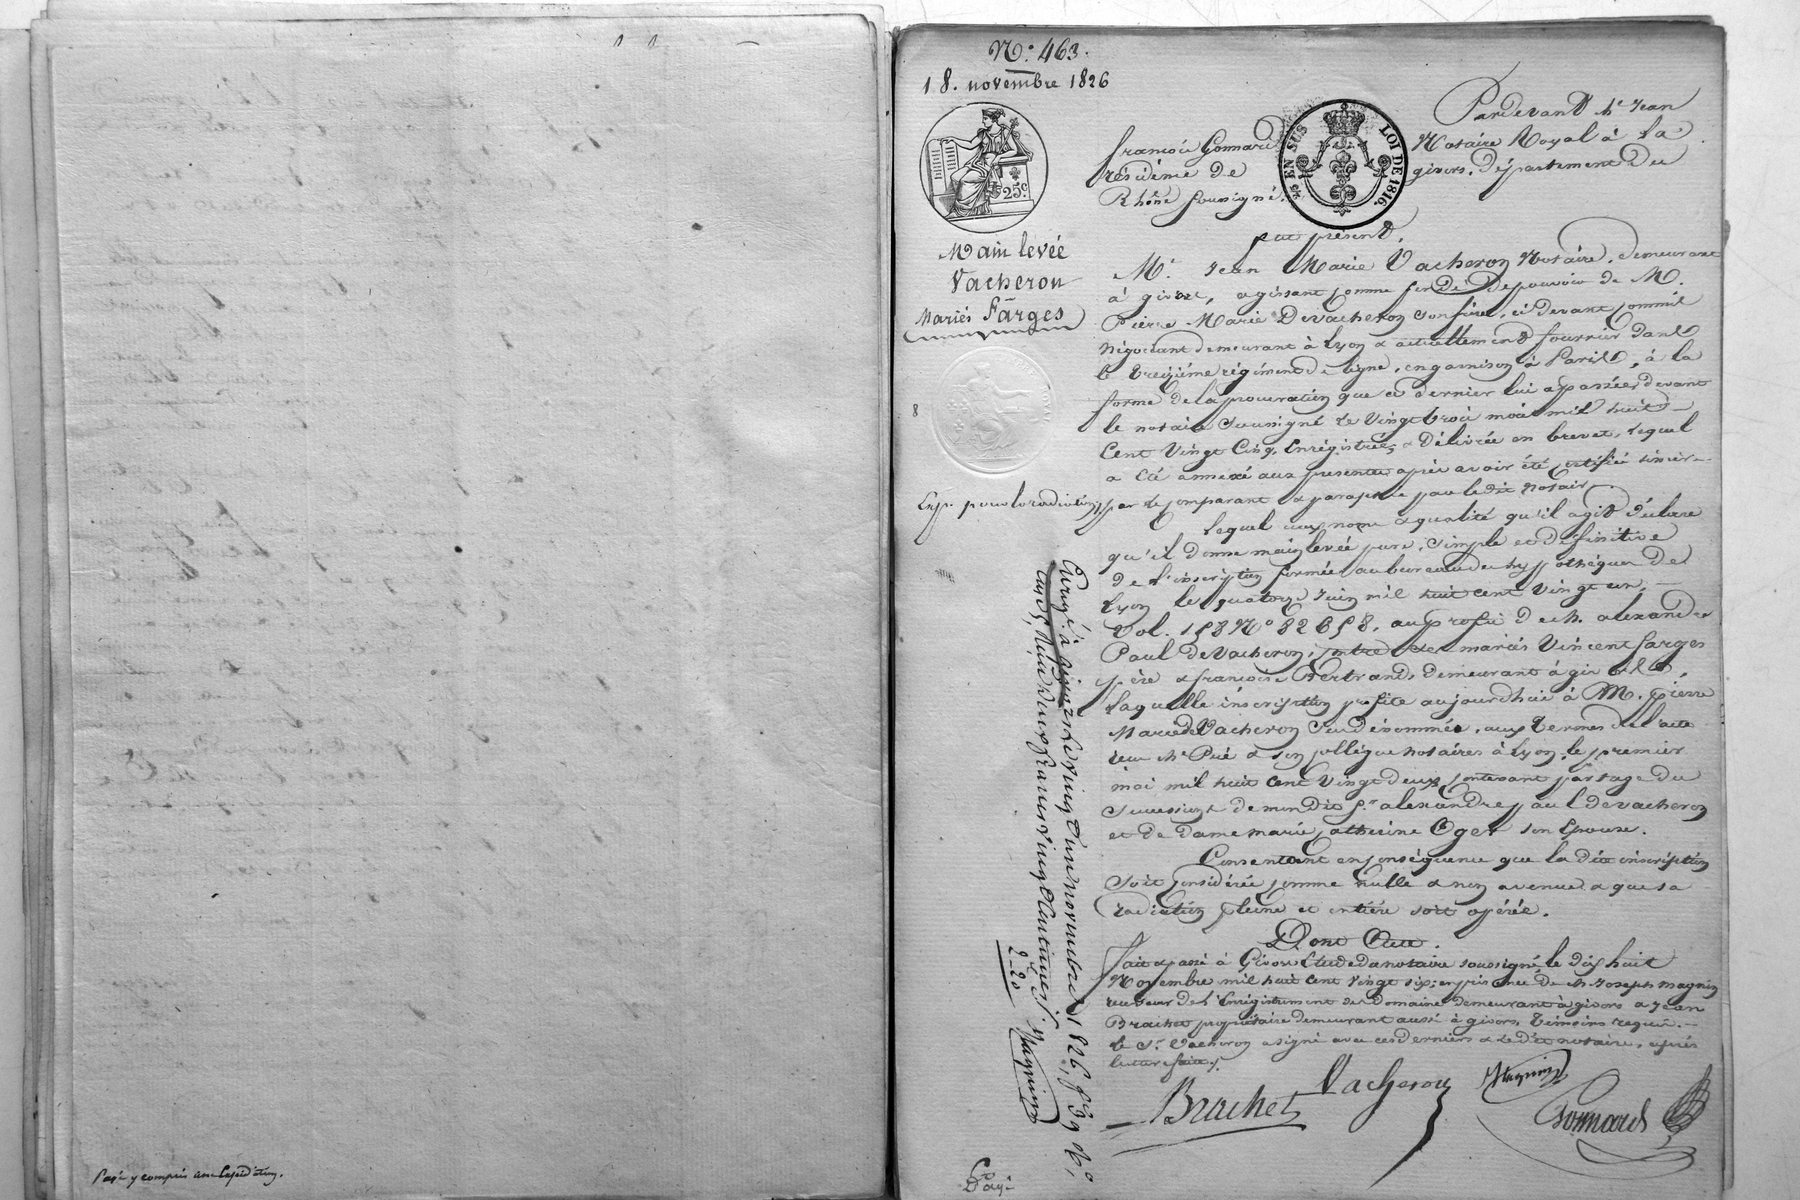 Payé y compris une Expédition.
N.º 463.
18. novembre 1826
25c.
EN SUS LOI DE 1816.
Main levée
Vacheron
Mariés Farges
8
Exp. pour la radiation
Pardevant Me Jean
françois Gonnard Notaire Royal à la
résidence de givors, département du
Rhône soussigné.
fut présent,
Mr. Jean Marie Vacheron Notaire, demeurant
à givors, agissant comme fondé de pouvoir de M.
Pierre Marie Devacheron son frère, ci devant commis
Négociant demeurant à Lyon & actuellement fourrier dans
le treizième régiment de ligne, en garnison à Paris, à la
forme de la procuration que ce dernier lui a passée, devant
le notaire soussigné le vingt trois mai mil huit
Cent Vingt Cinq, Enrégistrée, & délivrée en brevet, lequel
a été annexé aux présentes après avoir été certifié sincère
par le comparant & paraphé par le dit Notaire.
Lequel aux noms & qualité qu'il agit déclare
qu'il donne main levée pure, simple et définitive
de l'inscription formée au bureau des hypothèques de
Lyon le quatorze Juin mil huit cent vingt un,
Vol. 158 No 82658, au profit de M. alexandre
Paul deVacheron, contre les mariés Vincent farges
père & françoise Bertrand, demeurant à givors,
Laquelle inscription profite aujourdhui à M. Pierre
Marie deVacheron Susdénommé, aux termes de l'acte
reçu Me Pré & son collègue notaires à Lyon, le premier
mai mil huit cent vingt deux contenant partage des
successions de mondit Sr. alexandre paul devacheron
et de dame marie catherine Oger son épouse.
Consentant en conséquence que la dite inscription
soit considérée comme nulle & non avenue & que sa
radiation pleine et entière soit opérée.
Dont Acte.
Fait & passé à Givors Etude du notaire soussigné, le dix huit
Novembre mil huit cent vingt six; en présence de M. Joseph magnin
receveur de l'Enrégistrement & des domaines demeurant à givors & jean
Brachet propriétaire demeurant aussi à givors, témoins requis.
le Sr. Vacheron a signé avec ces derniers & le dit notaire, après
lecture faite.
Brachet Vacheron Magnin
Gonnard
Enrgé à givors Le vingt un novembre 1826, fo 39 Ro,
case 5, Reçu deux francs vingt Centimes.
2-20 Magnin
Payé